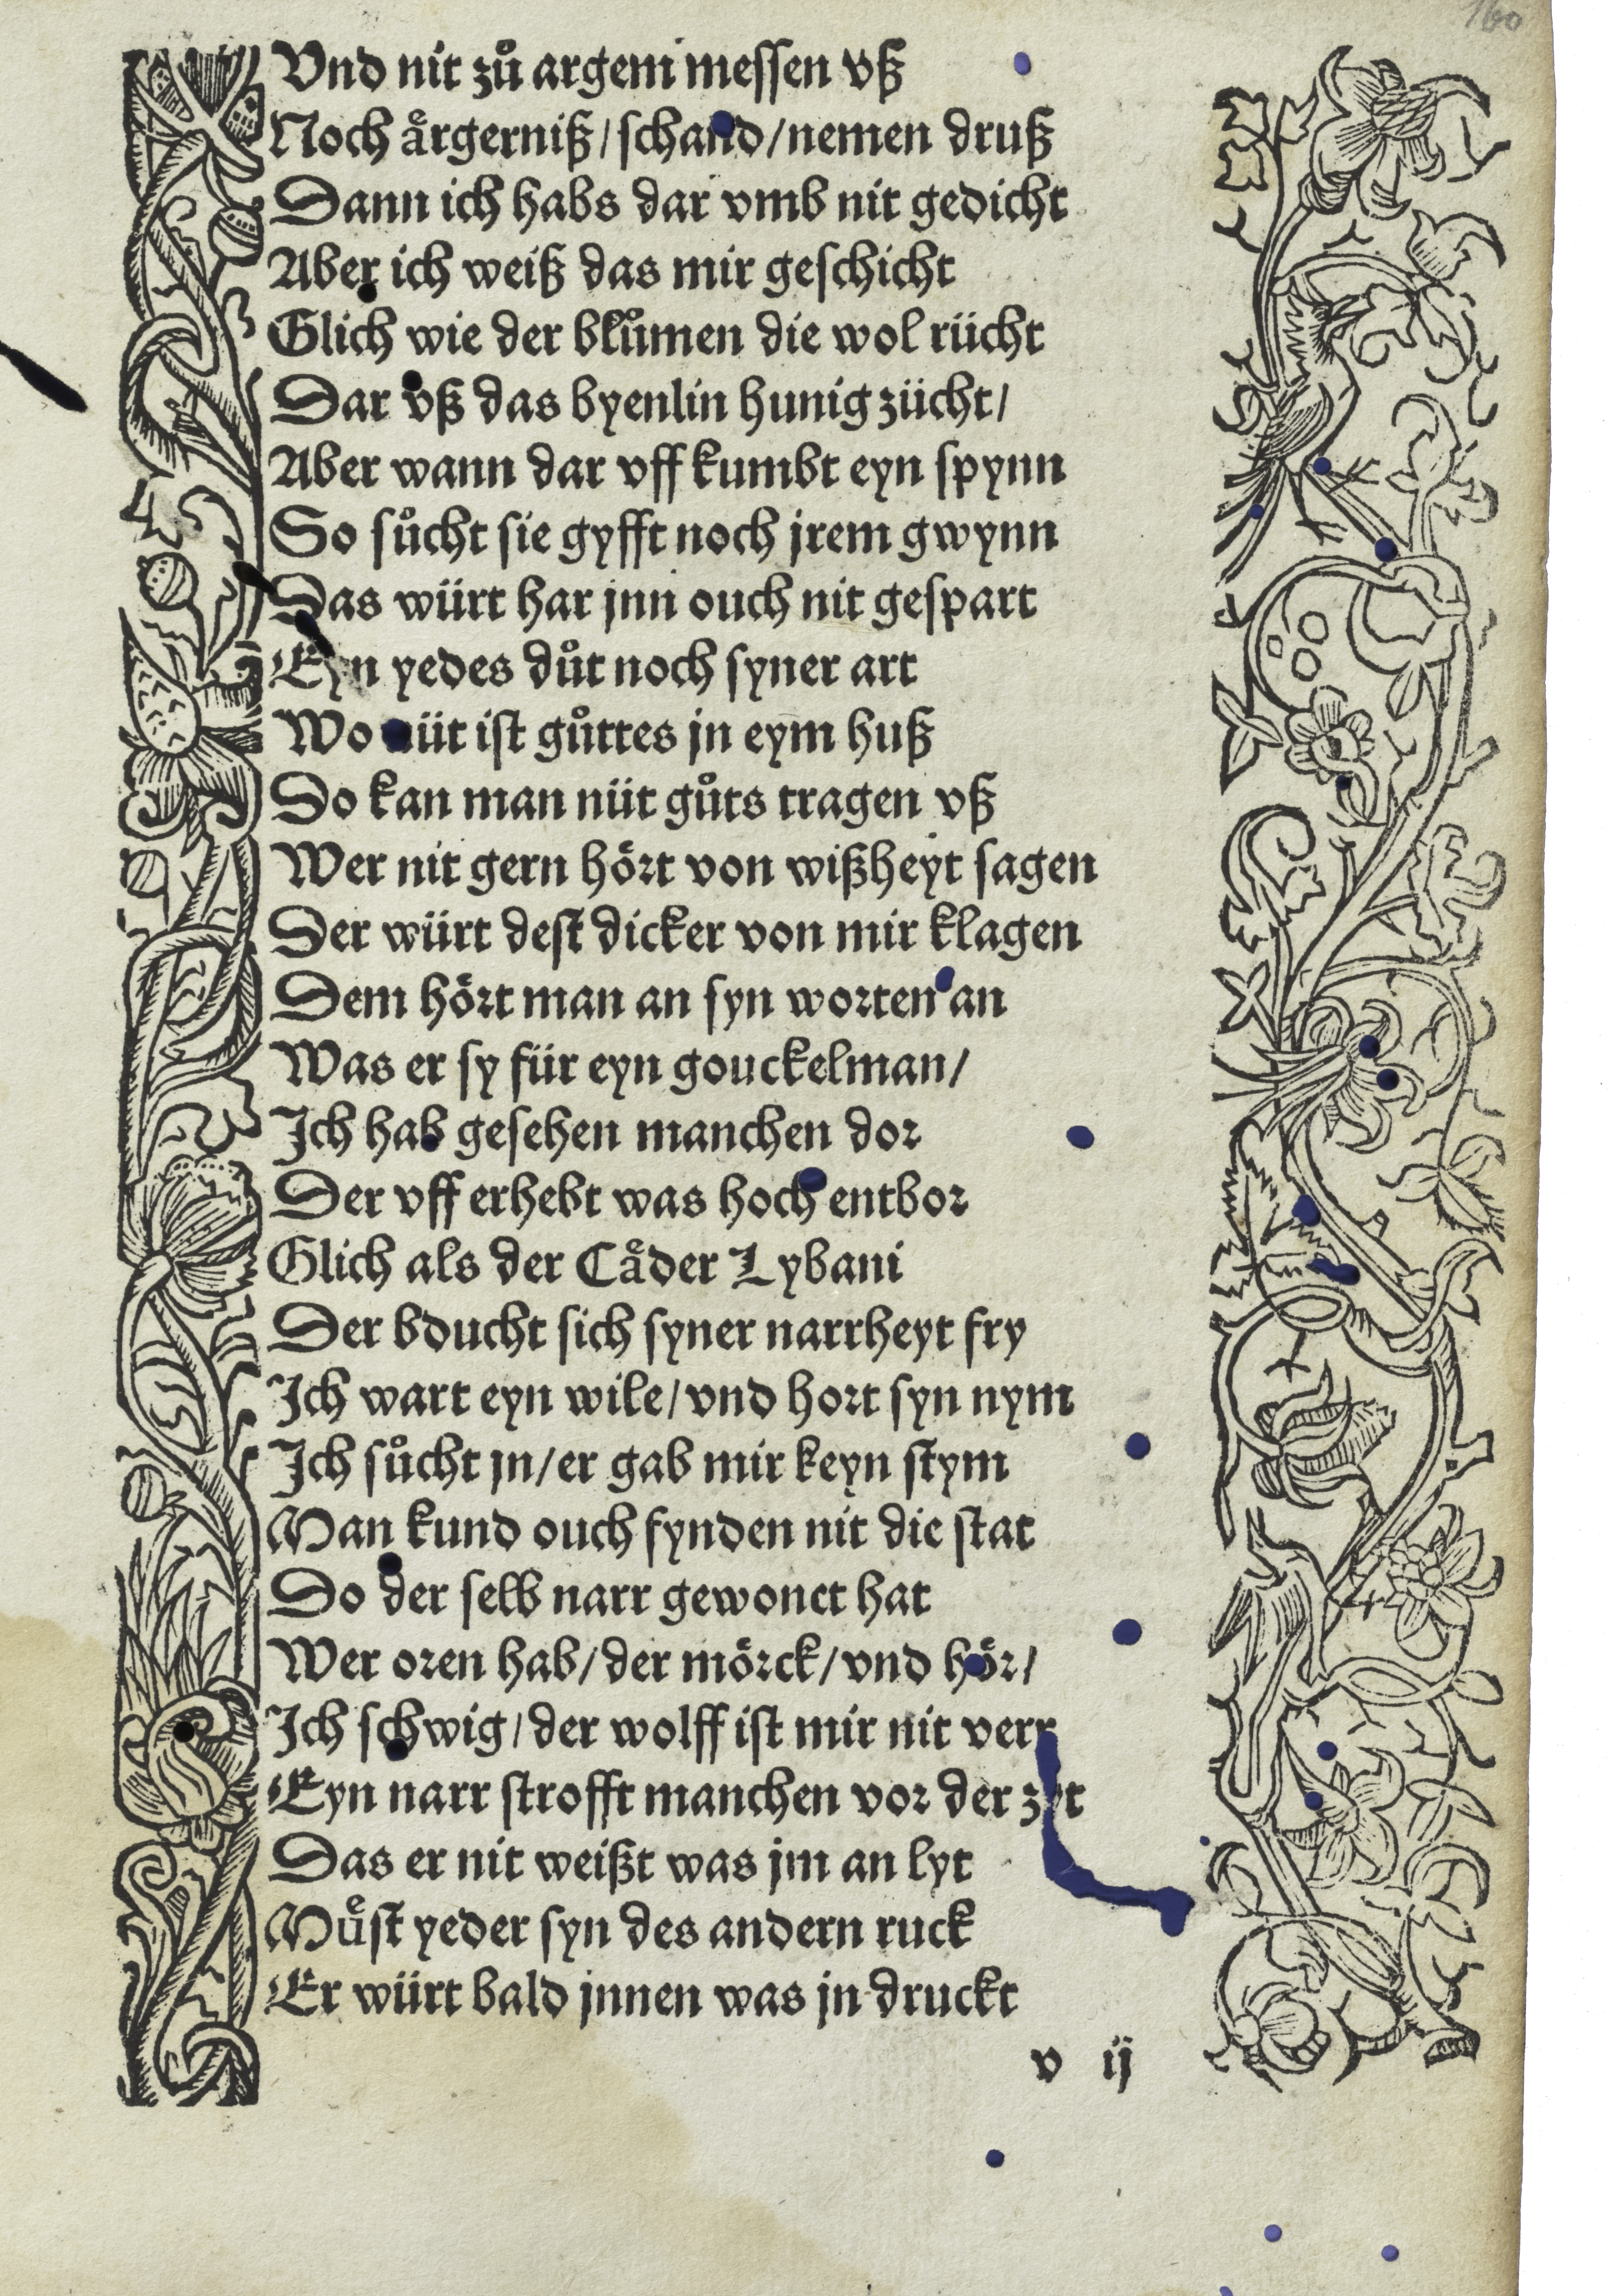 160
Vnd nit zuͦ argem messen vß
Noch aͤrgerniß/schand/nemen druß
Dann ich habs dar vmb nit gedicht
Aber ich weiß das mir geschicht
Glich wie der bluͦmen die wol rücht
Dar vß das byenlin hunig zücht/
Aber wann dar vff kumbt eyn spynn
So suͦcht sie gyfft noch jrem gwynn
Das würt har jnn ouch nit gespart
Eyn yedes duͦt noch syner art
Wo nüt ist guͦttes jn eym huß
Do kan man nüt guͦts tragen vß
Wer nit gern hoͤrt von wißheyt sagen
Der würt dest dicker von mir klagen
Dem hoͤrt man an syn worten an
Was er sy für eyn gouckelman/
Ich hab gesehen manchen dor
Der vff erhebt was hoch entbor
Glich als der Caͤder Lybani
Der bducht sich syner narrheyt fry
Ich wart eyn wile/vnd hort syn nym
Ich suͦcht jn/er gab mir keyn stym
Man kund ouch fynden nit die stat
Do der selb narr gewonet hat
Wer oren hab/der moͤrck/vnd hoͤr/
Ich schwig/der wolff ist mir nit verr
Eyn narr strofft manchen vor der zyt
Das er nit weißt was jm an lyt
Muͤst yeder syn des andern ruck
Er würt bald jnnen was jn druckt
v ij